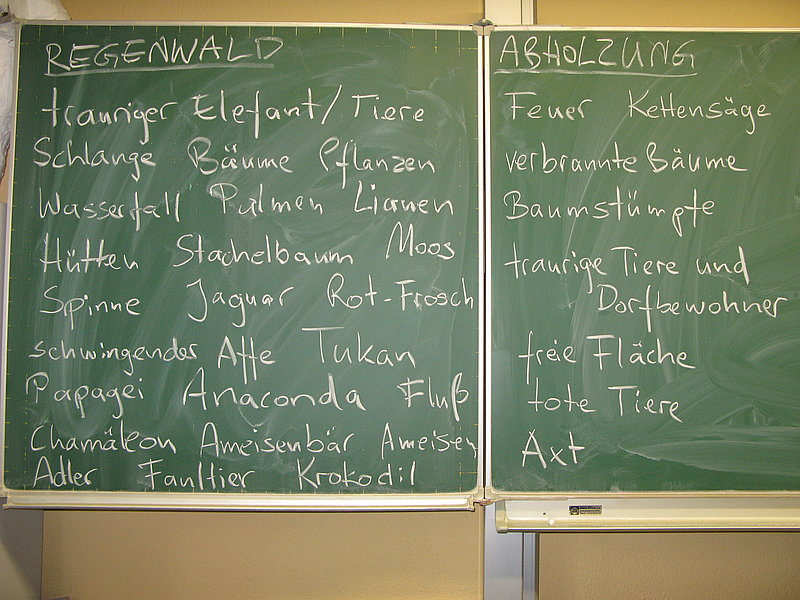 REGENWALD
trauriger Elefant/Tiere
Schlange Bäume Pflanzen
Wasserfall Palmen Lianen
Hütten Stachelbaum Moos
Spinne Jaguar Rot-Frosch
schwingender Affe Tukan
Papagei Anaconda Fluß
Chamäleon Ameisenbär Ameisen
Adler Faultier Krokodil
ABHOLZUNG
Feuer Kettensäge
verbrannte Bäume
Baumstümpfe
traurige Tiere und
Dorfbewohner
freie Fläche
tote Tiere
Axt